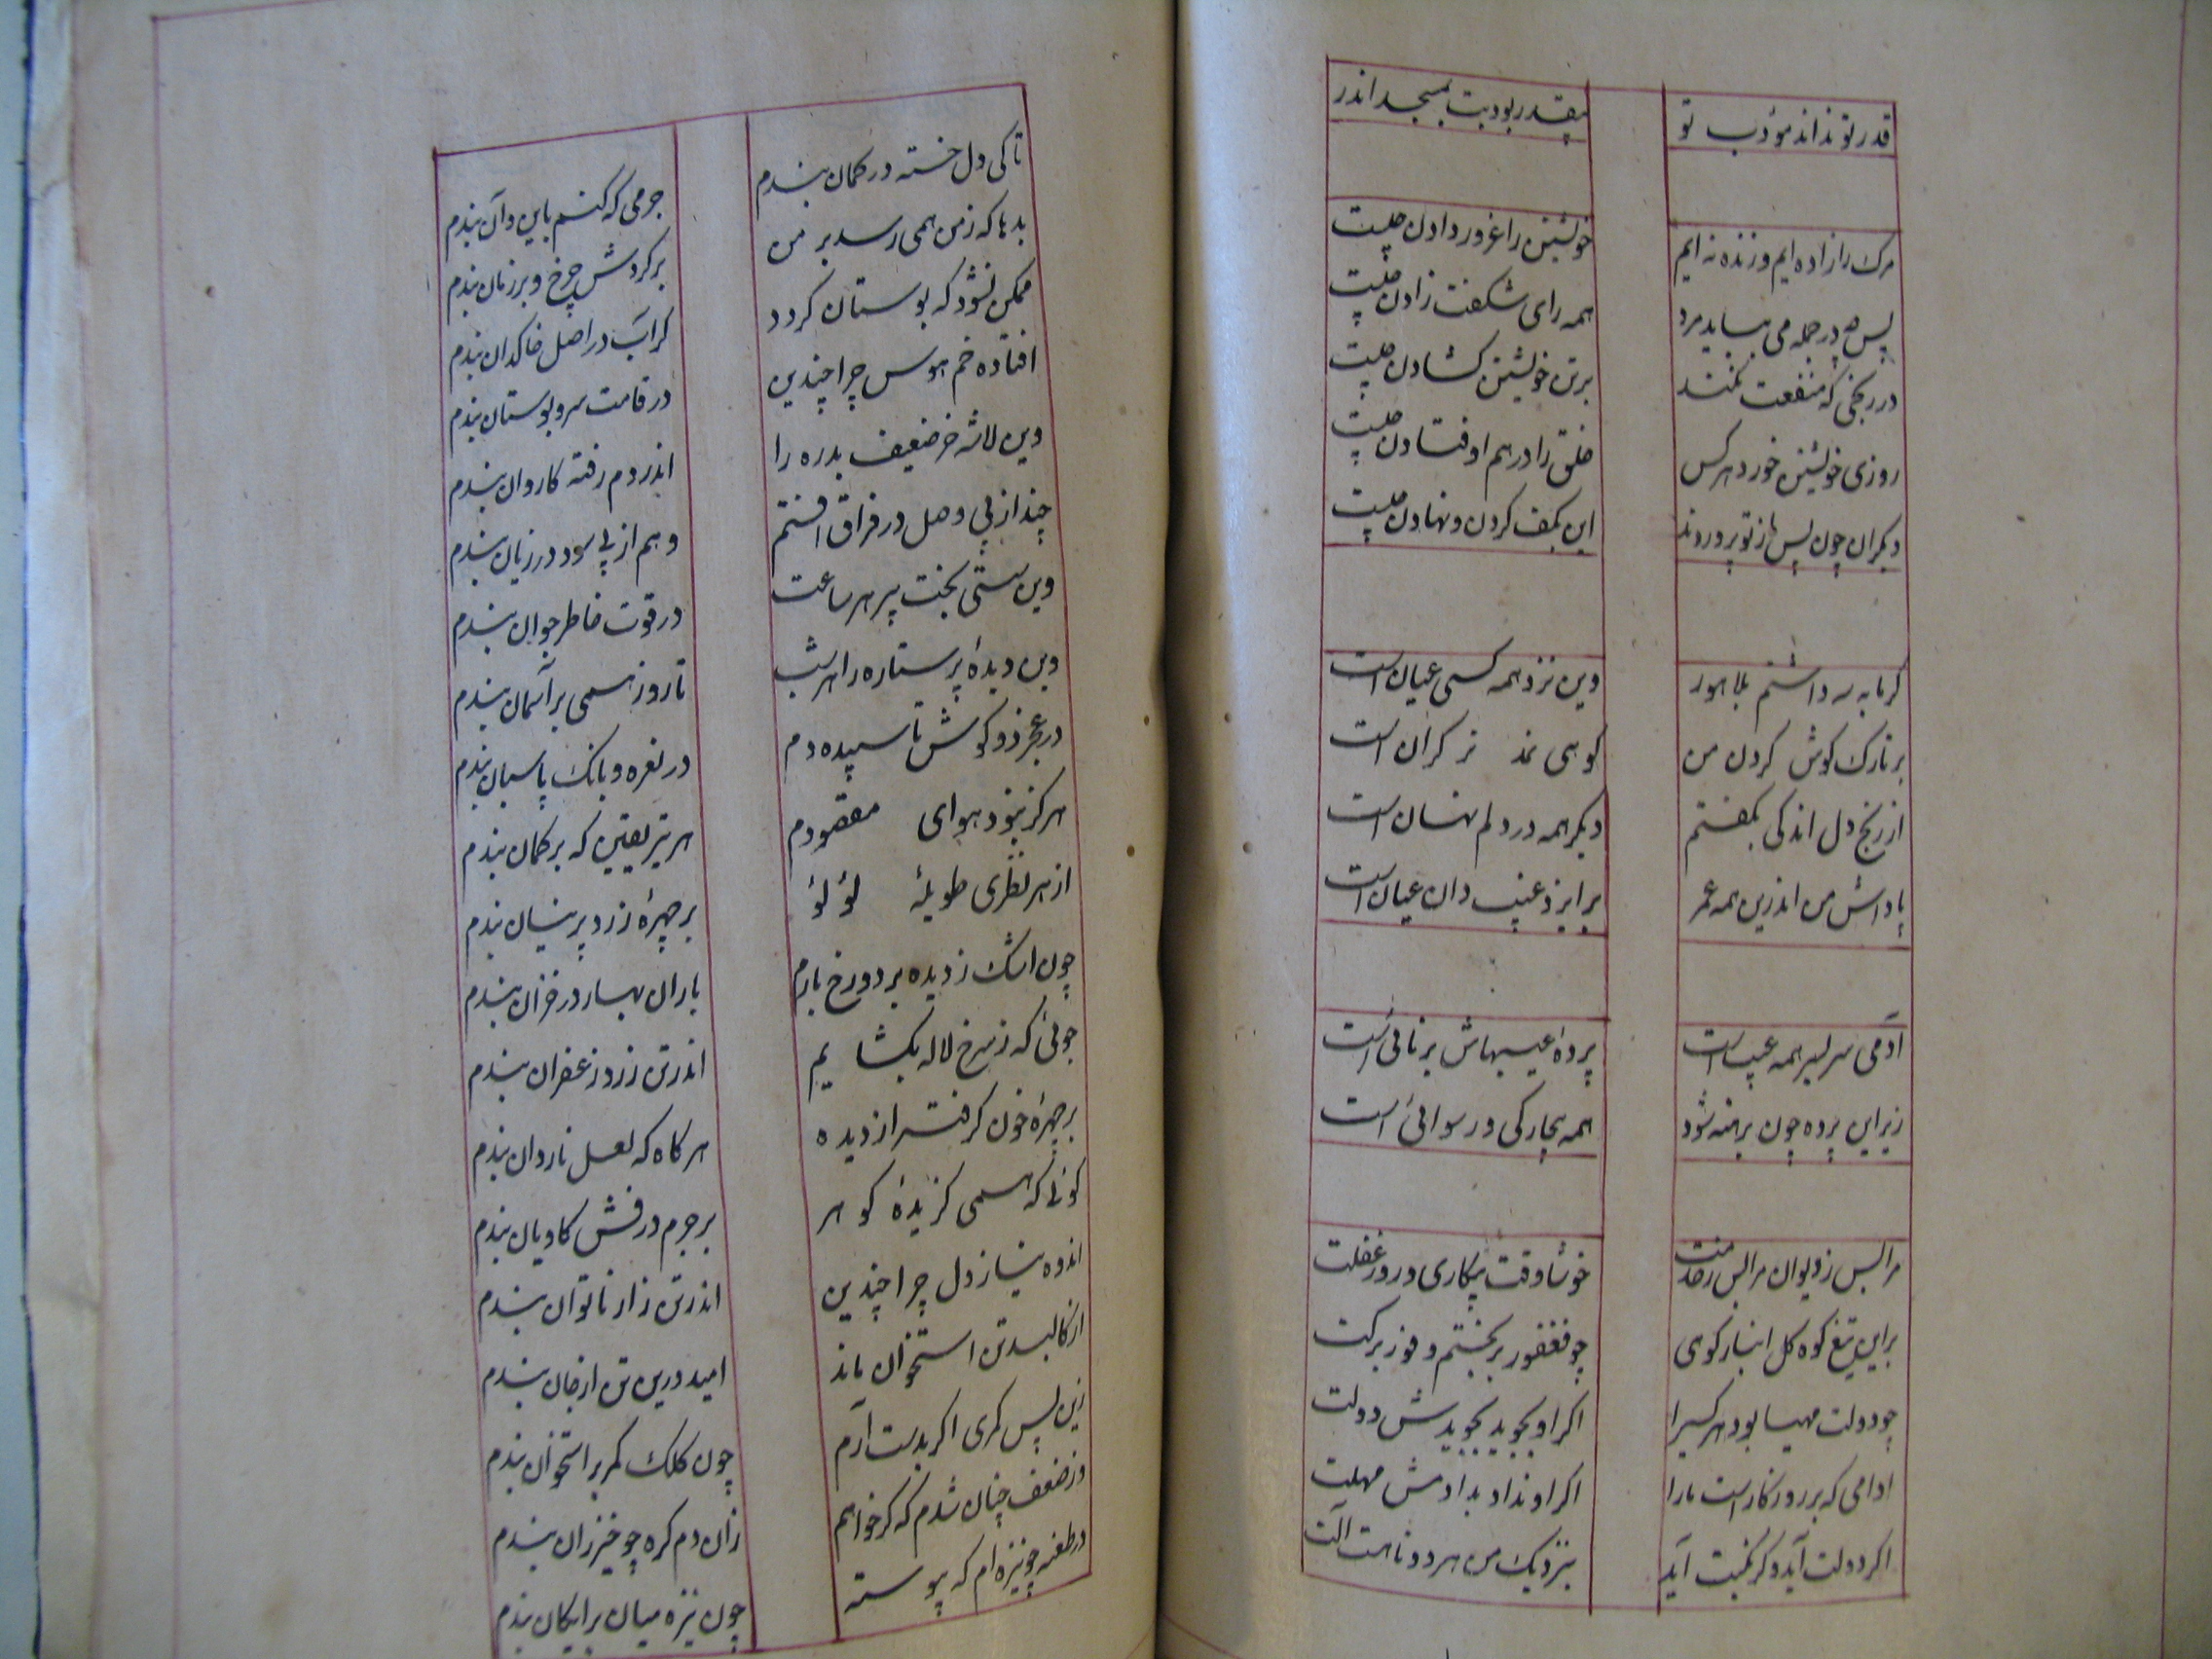 قدر تو نداند مؤدب تو
بیقدر بود بت بمسجد اندر
مرک را زاده ایم و زنده نه ایم
خویشتن را غرور دادن چیست
پس چو در جمله می بباید مرد
همه رای شکفت زادن چیست
در رنجی که منفعت نکند
بر تن خویشتن کشادن چیست
روزی خویشتن خورد هر کس
خلق را در هم اوفتادن چیست
دیکران چون پس از تو بر دروند
این بکف کردن و نهادن چیست
کرمابه سه داشتم بلاهور
وین نزد همه کسی عیان است
بر تارک کوش کردن من
کوهی کران است
از رنج دل اندکی بکفتم
دیکر همه در دلم نهان است
پاداش من اندرین همه عمر
بر ایزد غیب دان عیان است
آدمی سر بسر همه عیب است
پرده عیبهاش برنائی است
زیر این پرده چون برهنه شود
همه بیچارکی و رسوائی است
مرا بس ز دیوان مرا بس ز خدمت
خوشا وقت بیکاری و روز عفلت
بر این تیغ کوه کل انبار کوی
چو فغفور بر تختم و فور بر کت
چو دولت مهیا بود هر کسیرا
اکر او بجوید بجویدش دولت
ادامی که بر روزکار است ما را
اکر او نداد بدادمش مهلت
اکر دولت آید و کر نکبت آید
بنزدیک من هر دو تا هست آلت
تا کی دل خسته در کمان بندم
جرمی که کنم باین و آن بندم
بدها که ز من همی رسد بر من
بر کردش چرخ و بر زمان بندم
ممکن نشود که بوستان کردد
کر آب در اصل خاکدان بندم
افتاده خم هوس چرا چندین
در قامت سرو بوستان بندم
وین لاشه خر ضعیف بدره را
اندر دم رفته کاروان بندم
چند از پی وصل در فراق افتم
وهم از پی سود در زیان بندم
وین سستی بخت پیر هر ساعت
در قوت خاطر جوان بندم
وین دیده پر ستاره را هر شب
تا روز همی بر آسمان بندم
در عجز دو کوش تا سپیده دم
در نعره و بانک پاسبان بندم
هرکز نبرد هوای مقصودم
هر تیر یقین که بر کمان بندم
از هر نظری طویله لؤلؤ
بر چهره زرد پرنیان بندم
چون اشک ز دیده بر دو رخ بارم
باران بهار در خزان بندم
جوئی که ز سرخ لاله بکشایم
اندر تن زرد زعفران بندم
بر چهره خون کرفته از دیده
هر کاه که لعل ناردان بندم
کوئی که همی کزیده کوهر
بر جرم درفش کاویان بندم
اندوه نیاز دل چرا چندین
اندر تن زار ناتوان بندم
از کالبد تن استخوان ماند
امید درین تن از جان بندم
زین پس کمری اکر بدست آرم
چون کلک کمر بر استخوان بندم
وز ضعف چنان شدم که کر خواهم
زان دم کره چو خیزران بندم
در طعنه چو نیزه ام که پیوسته
چون نیزه میان برایکان بندم